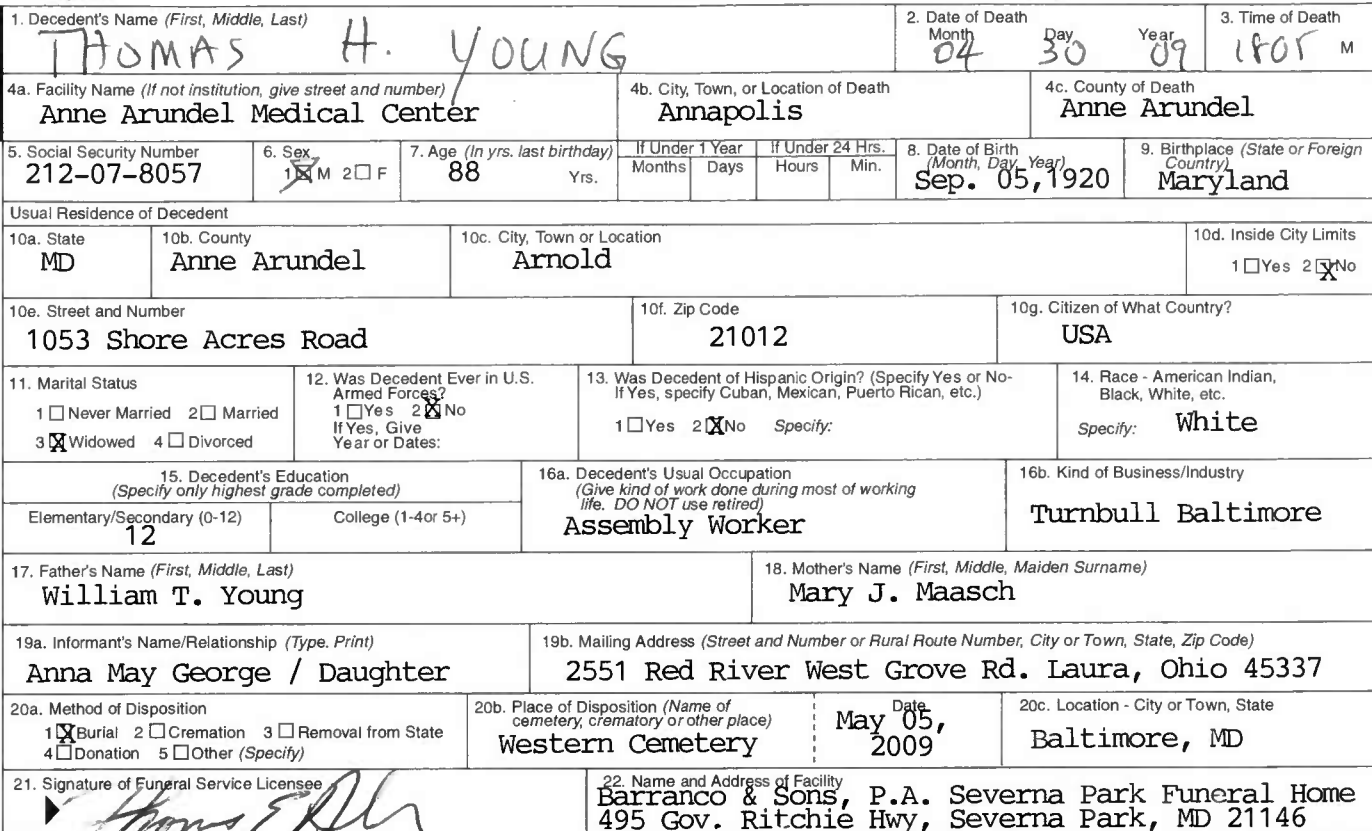 1. Decedent's Name (First, Middle, Last)
THOMAS H. YOUNG
2. Date of Death
Month Day Year
04 30 09
3. Time of Death
1805 M
4a. Facility Name (If not institution, give street and number)
Anne Arundel Medical Center
4b. City, Town, or Location of Death
Annapolis
4c. County of Death
Anne Arundel
5. Social Security Number
212-07-8057
6. Sex
1☒M 2☐F
7. Age (In yrs. last birthday)
88 Yrs.
If Under 1 Year
Months Days
If Under 24 Hrs.
Hours Min.
8. Date of Birth
(Month, Day, Year)
Sep. 05,1920
9. Birthplace (State or Foreign
Country)
Maryland
Usual Residence of Decedent
10a. State
MD
10b. County
Anne Arundel
10c. City, Town or Location
Arnold
10d. Inside City Limits
1☐Yes 2☒No
10e. Street and Number
1053 Shore Acres Road
10f. Zip Code
21012
10g. Citizen of What Country?
USA
11. Marital Status
1☐Never Married 2☐Married
3☒Widowed 4☐Divorced
12. Was Decedent Ever in U.S.
Armed Forces?
1☐Yes 2☒No
If Yes, Give
Year or Dates:
13. Was Decedent of Hispanic Origin? (Specify Yes or No-
If Yes, specify Cuban, Mexican, Puerto Rican, etc.)
1☐Yes 2☒No Specify:
14. Race - American Indian,
Black, White, etc.
Specify: White
15. Decedent's Education
(Specify only highest grade completed)
Elementary/Secondary (0-12)
12
College (1-4or 5+)
16a. Decedent's Usual Occupation
(Give kind of work done during most of working
life. DO NOT use retired)
Assembly Worker
16b. Kind of Business/Industry
Turnbull Baltimore
17. Father's Name (First, Middle, Last)
William T. Young
18. Mother's Name (First, Middle, Maiden Surname)
Mary J. Maasch
19a. Informant's Name/Relationship (Type. Print)
Anna May George / Daughter
19b. Mailing Address (Street and Number or Rural Route Number, City or Town, State, Zip Code)
2551 Red River West Grove Rd. Laura, Ohio 45337
20a. Method of Disposition
1☒Burial 2☐Cremation 3☐Removal from State
4☐Donation 5☐Other (Specify)
20b. Place of Disposition (Name of
cemetery, crematory or other place)
Western Cemetery
Date
May 05,
2009
20c. Location - City or Town, State
Baltimore, MD
21. Signature of Funeral Service Licensee
22. Name and Address of Facility
Barranco & Sons, P.A. Severna Park Funeral Home
495 Gov. Ritchie Hwy, Severna Park, MD 21146